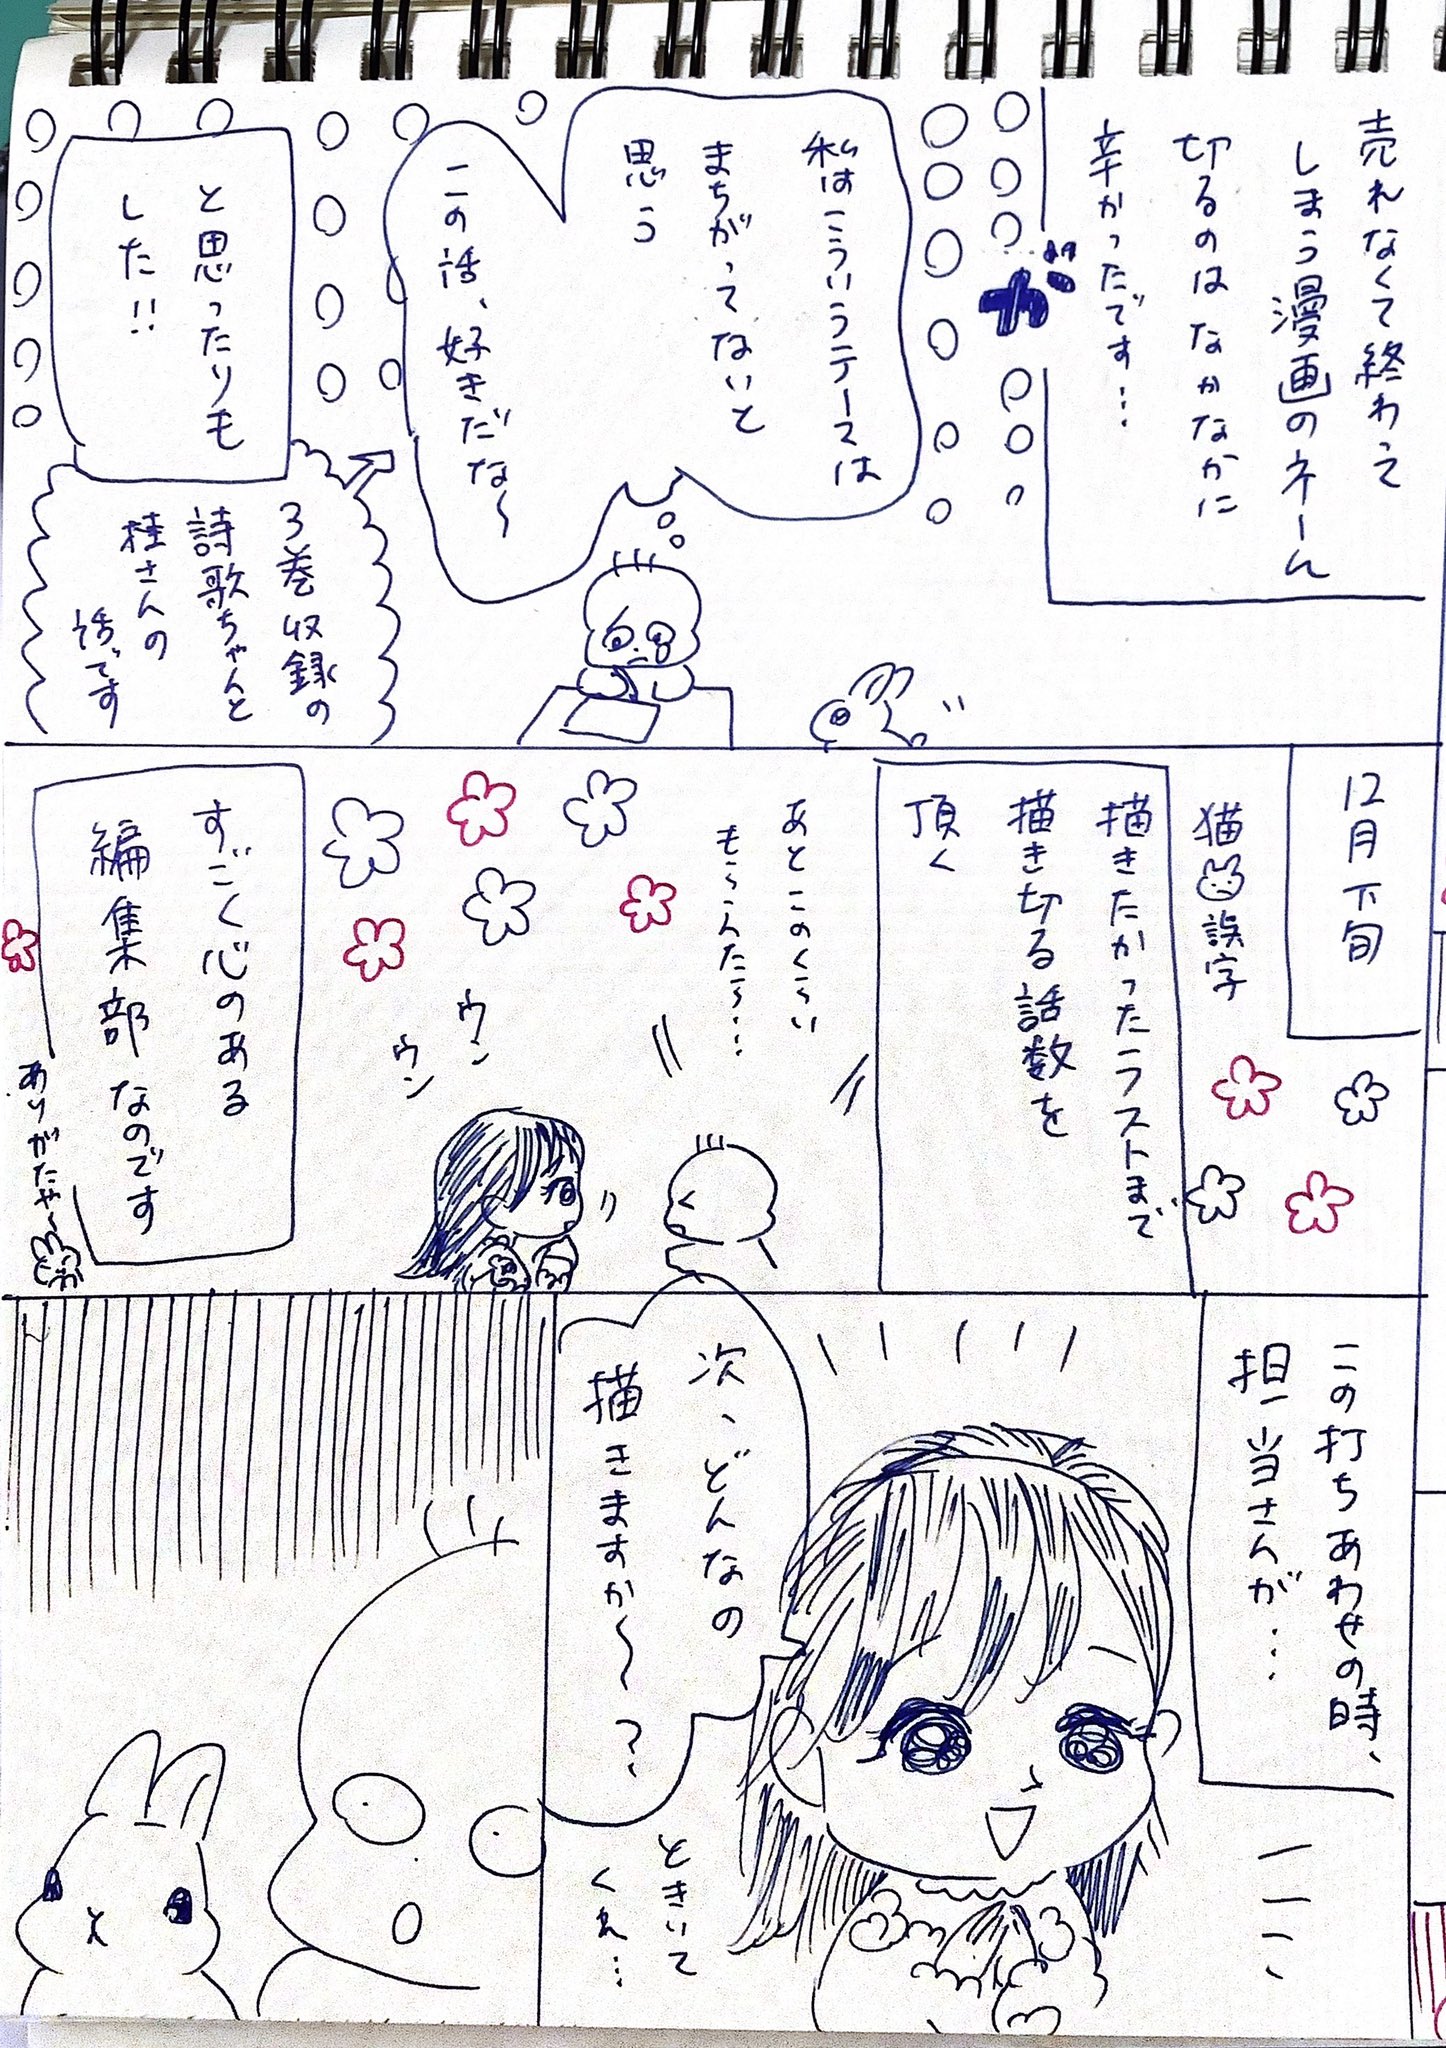 売れなくて終わって
しまう漫画のネーム
切るのはなかなかに
辛かったです…
が…
私はこういうテーマは
まちがってないと
思う
この話、好きだな〜
と思ったりも
した!!
3巻収録の
詩歌ちゃんと
桂さんの
話です
12月下旬
猫 誤字
描きたかったラストまで
描き切る話数を
頂く
あとこのくらい
もらえたら…
ウン
ウン
すごく心のある
編集部なのです
ありがたや〜
この打ちあわせの時、
担当さんが…
ニコニコ
次、どんなの
描きますか〜?
ときいて
くれ…